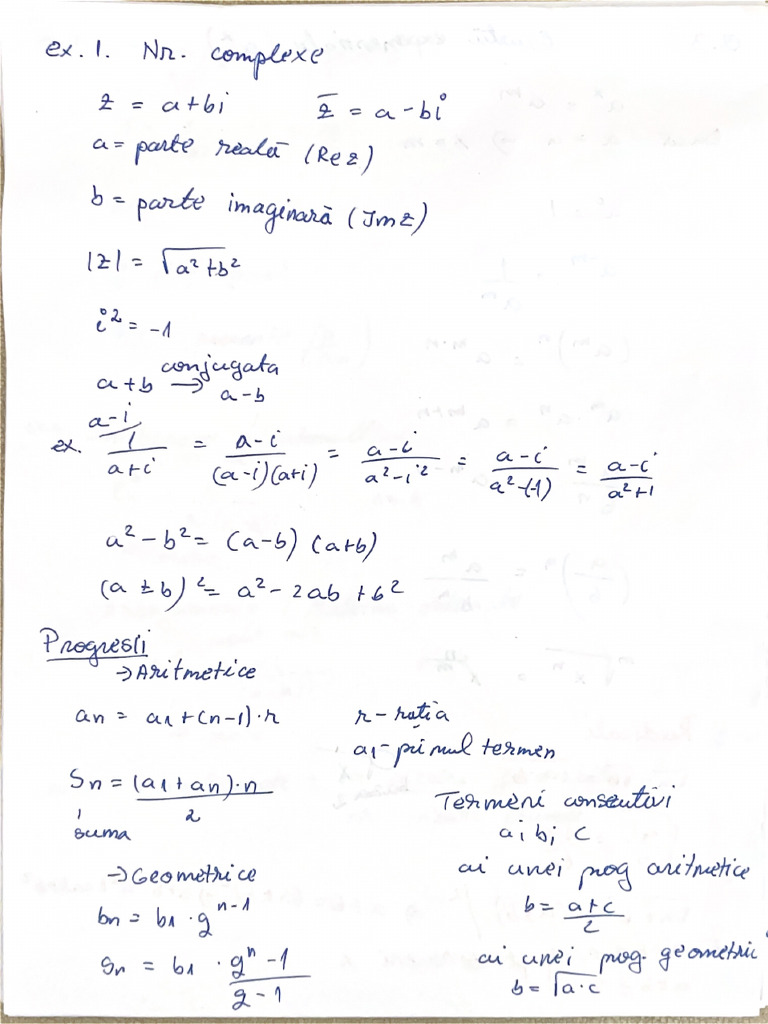 ex. 1. Nr. complexe
z = a+bi z̅ = a-bi
a = parte reală (Re z)
b = parte imaginară (Im z)
|z| = √a²+b²
i² = -1
conjugata
a+b → a-b
ex. ᵃ⁻ⁱ⁄ 1/(a+i) = (a-i)/((a-i)(a+i)) = (a-i)/(a²-i²) = (a-i)/(a²-(-1)) = (a-i)/(a²+1)
a² - b² = (a-b) (a+b)
(a ± b)² = a² - 2ab + b²
Progresii
→ Aritmetice
an = a1 + (n-1)·r r - rația
a1 - primul termen
Sn = (a1 + an)·n / 2
suma
Termeni consecutivi
a; b; c
→ Geometrice
ai unei prog aritmetice
bn = b1 · q^(n-1)
b = (a+c)/2
Sn = b1 · (q^n - 1)/(q - 1)
ai unei prog. geometric
b = √a·c